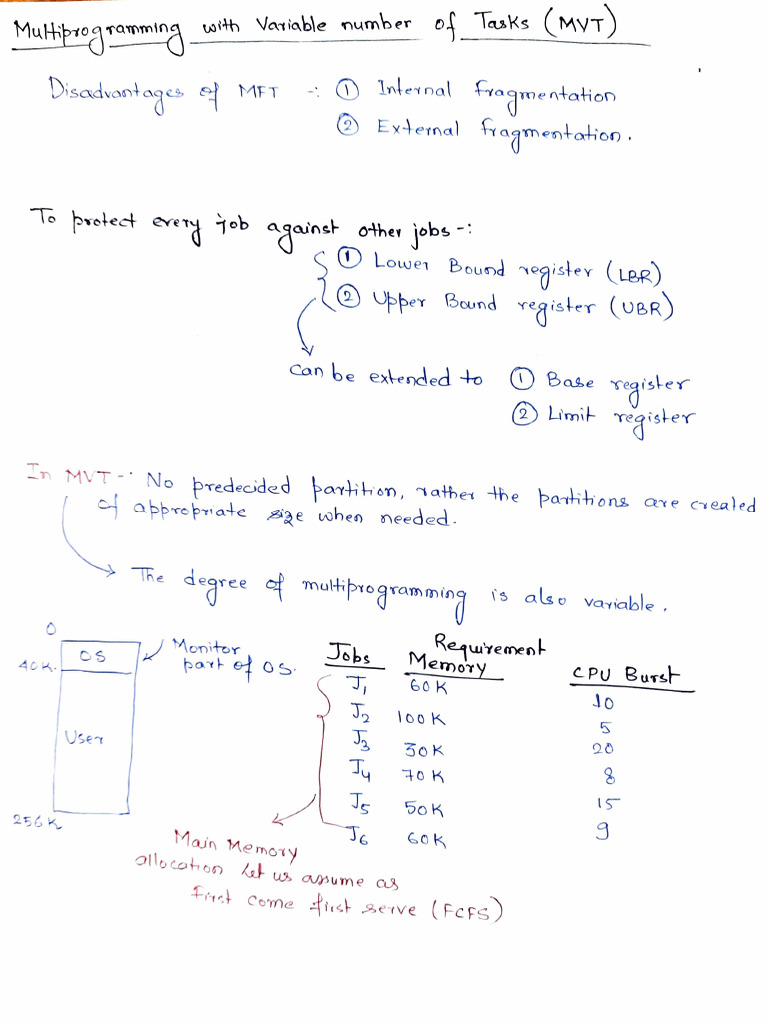 Multiprogramming with Variable number of Tasks (MVT)
Disadvantages of MFT -: ① Internal fragmentation
② External fragmentation.
To protect every job against other jobs -:
① Lower Bound register (LBR)
② Upper Bound register (UBR)
can be extended to ① Base register
② Limit register
In MVT -: No predecided partition, rather the partitions are created
of appropriate size when needed.
The degree of multiprogramming is also variable.
0
40K
OS
Monitor
part of OS.
User
256K
Jobs Requirement Memory CPU Burst
J1 60K 10
J2 100K 5
J3 30K 20
J4 70K 8
J5 50K 15
J6 60K 9
Main Memory
allocation let us assume as
first come first serve (FCFS)